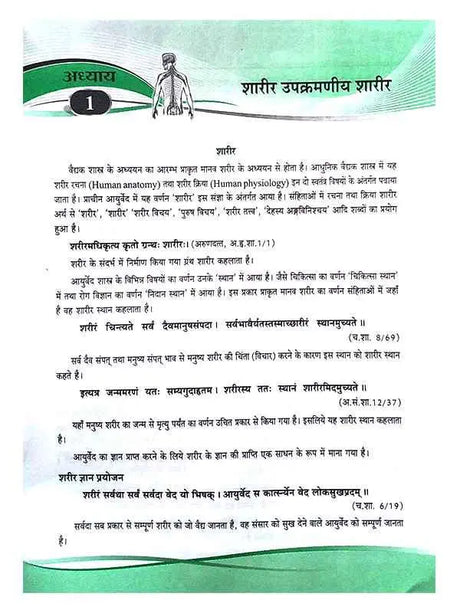 अध्याय
1
शारीर उपक्रमणीय शारीर
शारीर
वैद्यक शास्त्र के अध्ययन का आरम्भ प्राकृत मानव शरीर के अध्ययन से होता है। आधुनिक वैद्यक शास्त्र में यह
शरीर रचना (Human anatomy) तथा शरीर क्रिया (Human physiology) इन दो स्वतंत्र विषयों के अंतर्गत पढाया
जाता है। प्राचीन आयुर्वेद में यह वर्णन 'शारीर' इस संज्ञा के अंतर्गत आया है। संहिताओं में रचना तथा क्रिया शारीर
अर्थ से 'शरीर', 'शारीर' 'शरीर विचय', 'पुरुष विचय', 'शरीर तत्व', 'देहस्य अङ्गविनिश्चय' आदि शब्दों का प्रयोग
हुआ है।
शरीरमधिकृत्य कृतो ग्रन्थः शारीरः। (अरुणदत्त, अ.ह.शा.1/1)
शरीर के संदर्भ में निर्माण किया गया ग्रंथ शारीर कहलाता है।
आयुर्वेद शास्त्र के विभिन्न विषयों का वर्णन उनके 'स्थान' में आया है। जैसे चिकित्सा का वर्णन 'चिकित्सा स्थान'
में तथा रोग विज्ञान का वर्णन 'निदान स्थान' में आया है। इस प्रकार प्राकृत मानव का वर्णन संहिताओं में जहाँ
है वह शारीर स्थान कहलाता है।
शरीरं चिन्त्यते सर्वं दैवमानुषसंपदा । सर्वभावैर्यतस्तस्माच्छारीरं स्थानमुच्यते॥
(च.शा. 8/69)
सर्व दैव संपत् तथा मनुष्य संपत् भाव से मनुष्य शरीर की चिंता (विचार) करने के कारण इस स्थान को शारीर स्थान
कहते है।
इत्यत्र जन्ममरणं यतः सम्यगुदाहृतम। शरीरस्य ततः स्थानं शारीरमिदमुच्यते॥
(अ.सं.शा.12/37)
यहाँ मनुष्य शरीर का जन्म से मृत्यु पर्यंत का वर्णन उचित प्रकार से किया गया है। इसलिये यह शारीर स्थान कहलाता
है।
आयुर्वेद का ज्ञान प्राप्त करने के लिये शरीर के ज्ञान की प्राप्ति एक साधन के रूप में माना गया है।
शारीर ज्ञान प्रयोजन
शरीरं सर्वथा सर्वं सर्वदा वेद यो भिषक्। आयुर्वेद स कार्त्स्न्येन वेद लोकसुखप्रदम्॥
(च.शा. 6/19)
सर्वदा सब प्रकार से सम्पूर्ण शरीर को जो वैद्य जानता है, वह संसार को सुख देने वाले आयुर्वेद को सम्पूर्ण जानता
है।